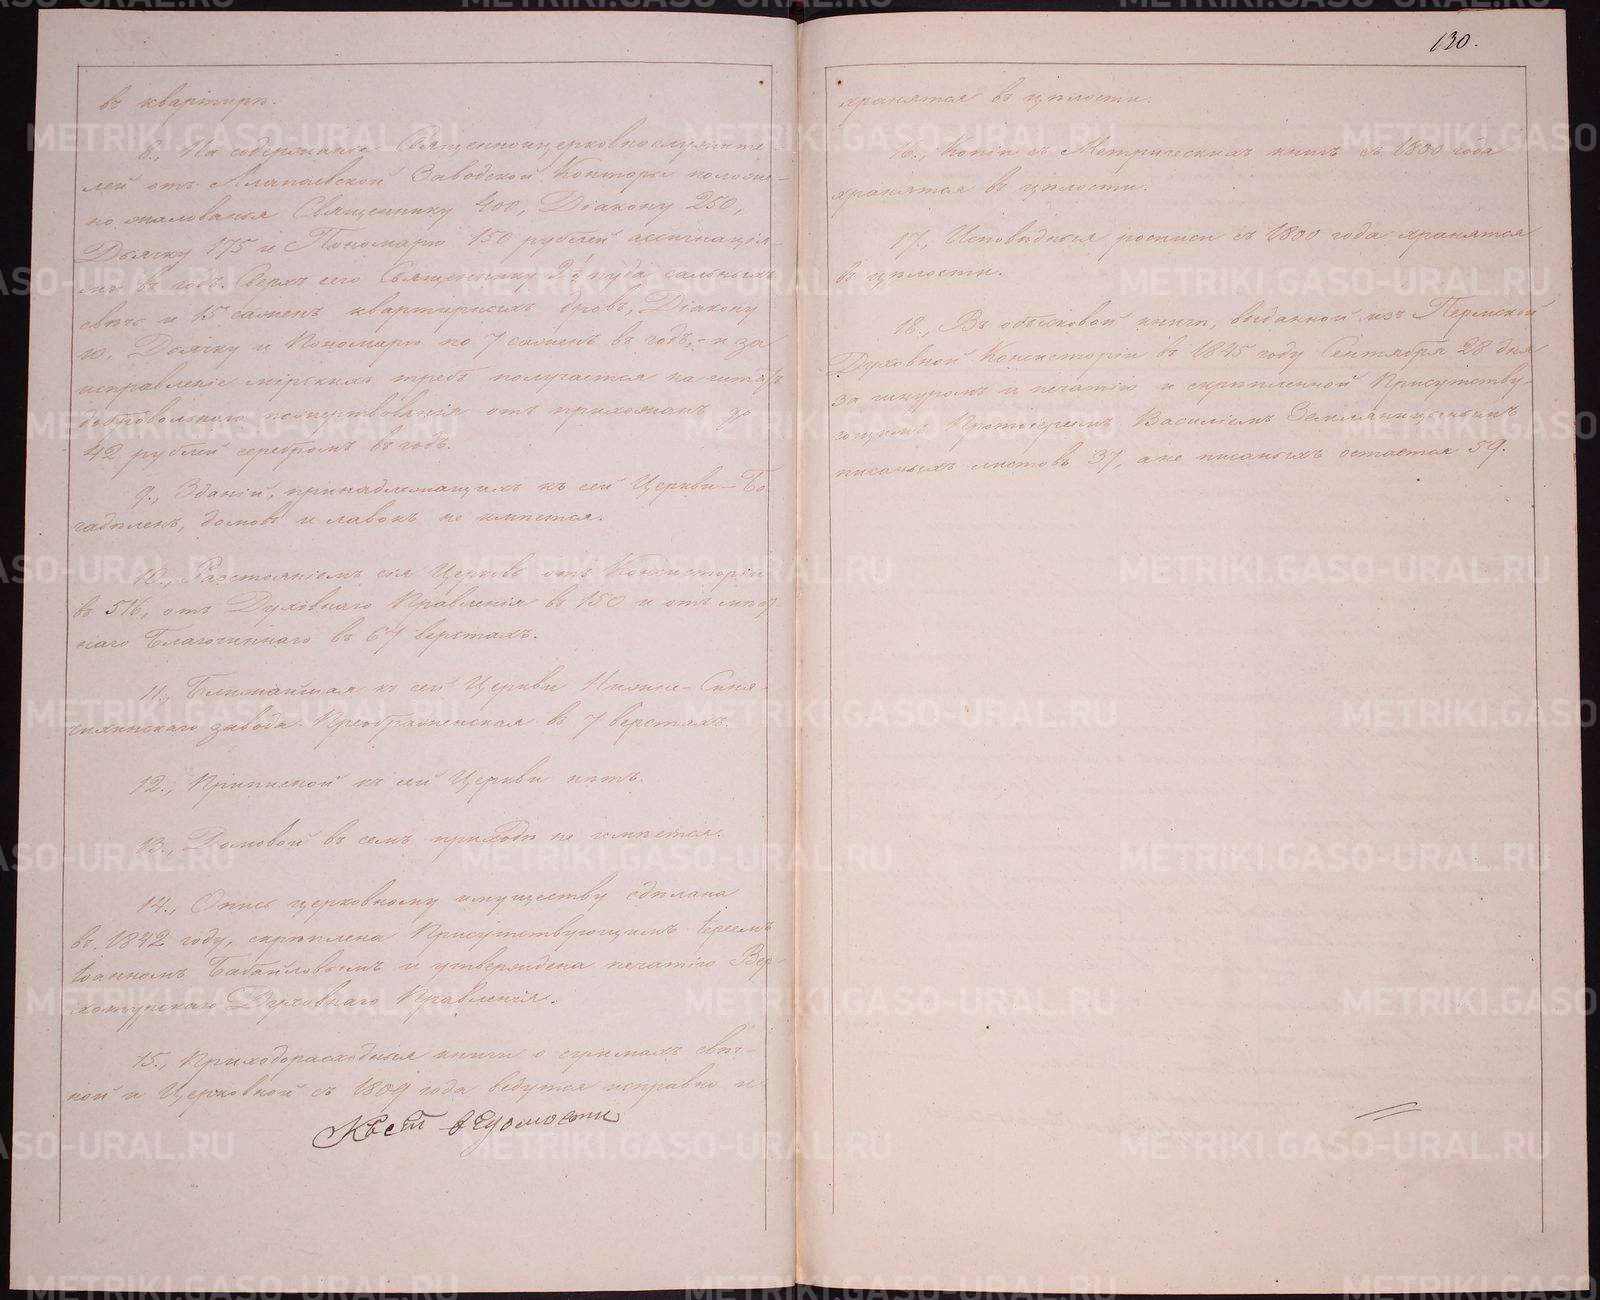 въ квартирѣ.
8., На содержаніе Священноцерковнослужите-
лей отъ Алапаевской Заводской Конторы положе-
но жалованья Священнику 400, Діакону 250,
Дьячку 175 и Пономарю 150 рублей ассигнація-
ми въ годъ. Сверхъ сего Священнику 2½ пуда сальныхъ
свѣчь и 15 саженъ квартирныхъ дровъ, Діакону
10, Дьячку и Пономарю по 7 саженъ въ годъ, - и за
исправленіе мірскихъ требъ получается
добровольнаго пожертвованія отъ прихожанъ до
42 рублей серебромъ въ годъ.
9., Зданій, принадлежащихъ къ сей Церкви - Бо-
гадѣленъ, домовъ и лавокъ не имѣется.
10., Разстояніемъ сія Церковь отъ Консисторіи
въ 516, отъ Духовнаго Правленія въ 150 и отъ мѣст-
наго Благочиннаго въ 67 верстахъ.
11., Ближайшая къ сей Церкви Нижне-Синя-
чихинскаго завода Преображенская въ 7 верстахъ.
12., Приписной къ сей Церкви нѣтъ.
13., Домовой въ семъ приходѣ не имѣется.
14., Опись церковному имуществу сдѣлана
въ 1842 году, скрѣплена Присутствующимъ Іереемъ
Іоанномъ Бабайловымъ и утверждена печатію Вер-
хотурскаго Духовнаго Правленія.
15., Приходорасходныя книги о суммахъ свѣч-
ной и Церковной съ 1809 года ведутся исправно и
Къ сей ведомости
130.
хранятся въ цѣлости.
16., Копіи съ Метрическихъ книгъ съ 1800 года
хранятся въ цѣлости.
17., Исповѣдныя росписи съ 1800 года хранятся
въ цѣлости.
18., Въ обыскной книгѣ, выданной изъ Пермской
Духовной Консисторіи въ 1845 году Сентября 28 дня
за шнуромъ и печатію и скрѣпленной Присутству-
ющимъ Протоіереемъ Василіемъ Земляницынымъ
писаныхъ листовъ 37, а не писаныхъ остается 59.
METRIKI.GASO-URAL.RU